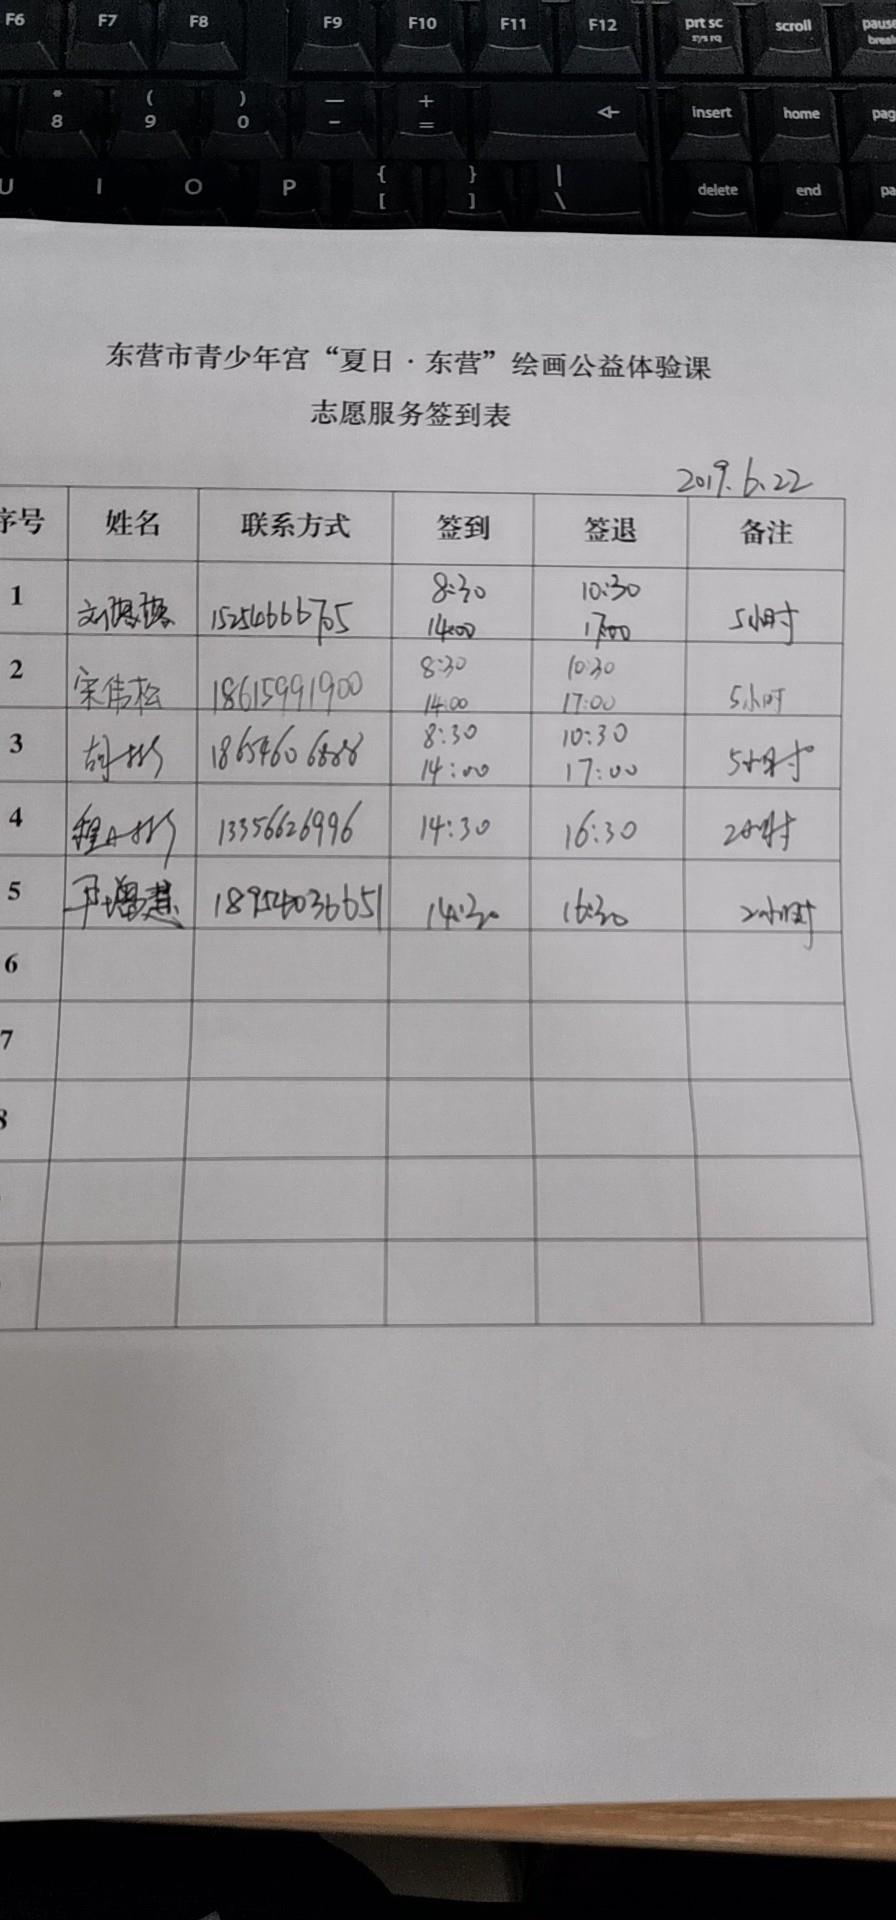 F6 F7 F8 F9 F10 F11 F12 prt sc sys rq scroll pause break
* 8 ( 9 ) 0 — - + = insert home pag
U I O P { [ } ] | \ delete end pa
东营市青少年宫“夏日·东营”绘画公益体验课
志愿服务签到表
2019.6.22
序号 姓名 联系方式 签到 签退 备注
1 15254666705 8:30 10:30 5小时
14:00 17:00
2 宋伟松 18615991900 8:30 10:30 5小时
14:00 17:00
3 18654606888 8:30 10:30 5小时
14:00 17:00
4 13356626996 14:30 16:30 2小时
5 18954036651 14:30 16:30 2小时
6
7
8